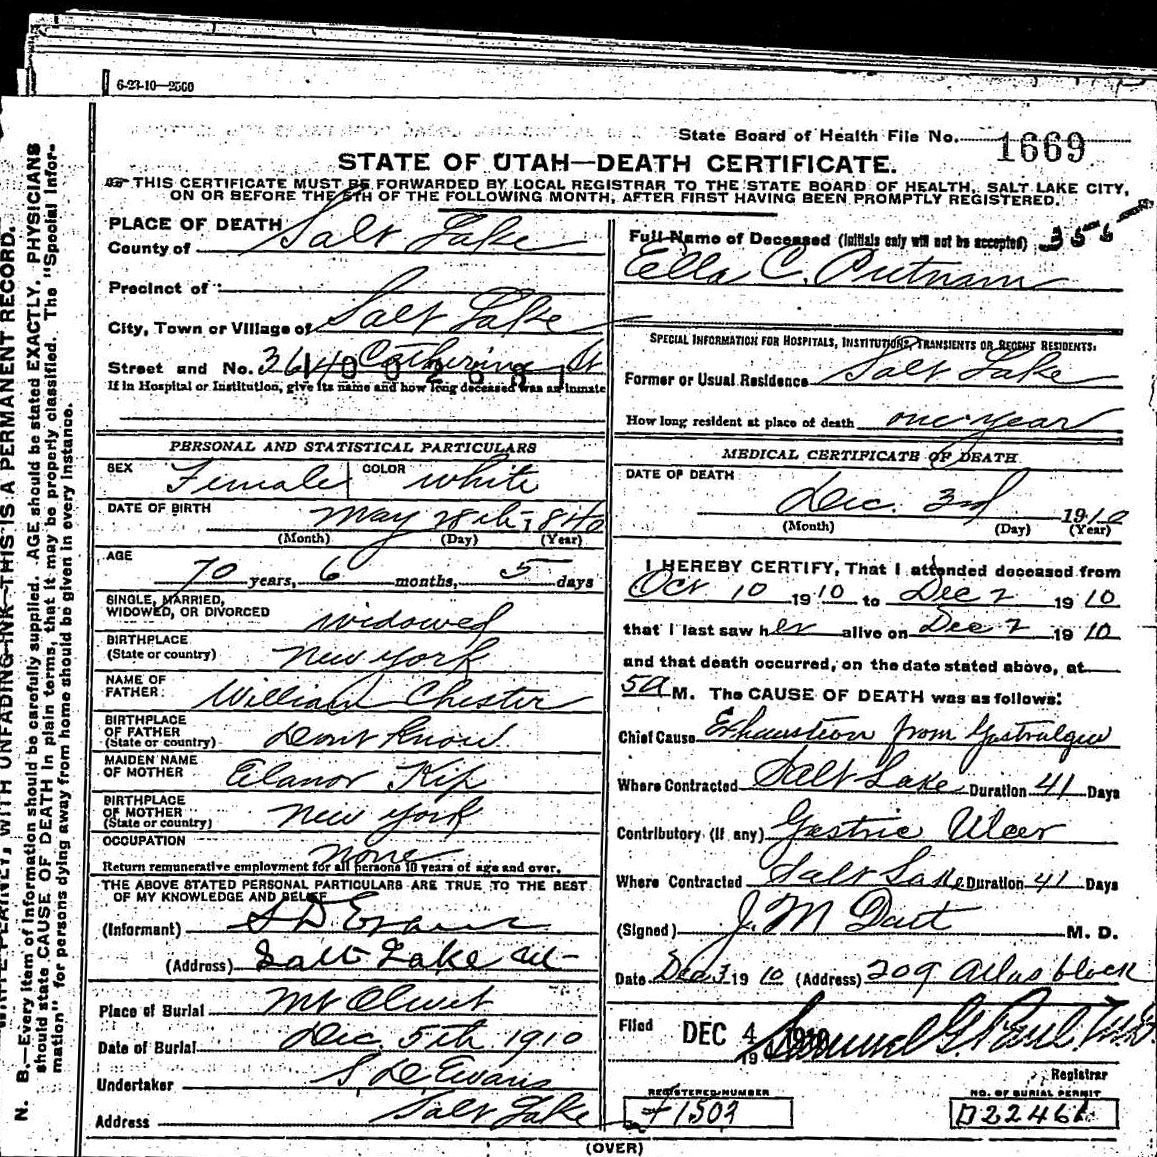 6-23-10—2500
State Board of Health File No. 1669
STATE OF UTAH—DEATH CERTIFICATE.
THIS CERTIFICATE MUST BE FORWARDED BY LOCAL REGISTRAR TO THE STATE BOARD OF HEALTH, SALT LAKE CITY,
ON OR BEFORE THE 5TH OF THE FOLLOWING MONTH, AFTER FIRST HAVING BEEN PROMPTLY REGISTERED.
N. B.—Every item of information should be carefully supplied. AGE should be stated EXACTLY. PHYSICIANS
should state CAUSE OF DEATH in plain terms, that it may be properly classified. The "Special Infor-
mation" for persons dying away from home should be given in every instance.
WITH UNFADING INK—THIS IS A PERMANENT RECORD.
PLACE OF DEATH
County of Salt Lake
Precinct of
City, Town or Village of Salt Lake
Street and No. 364 Catherine St
If in Hospital or Institution, give its name and how long deceased was an inmate
PERSONAL AND STATISTICAL PARTICULARS
SEX Female COLOR white
DATE OF BIRTH May 28th 1840
(Month) (Day) (Year)
AGE
70 years, 6 months, 5 days
SINGLE, MARRIED,
WIDOWED, OR DIVORCED widowed
BIRTHPLACE
(State or country) New York
NAME OF
FATHER William Chester
BIRTHPLACE
OF FATHER
(State or country) Dont Know
MAIDEN NAME
OF MOTHER Elanor Kip
BIRTHPLACE
OF MOTHER
(State or country) New York
OCCUPATION
none
Return remunerative employment for all persons 10 years of age and over.
THE ABOVE STATED PERSONAL PARTICULARS ARE TRUE TO THE BEST
OF MY KNOWLEDGE AND BELIEF
(Informant) S D Evans
(Address) Salt Lake Ut
Place of Burial Mt Olivet
Date of Burial Dec. 5th 1910
Undertaker S. D. Evans
Address Salt Lake
Full Name of Deceased (Initials only will not be accepted) 356
Ella C. Putnam
SPECIAL INFORMATION FOR HOSPITALS, INSTITUTIONS, TRANSIENTS OR RECENT RESIDENTS.
Former or Usual Residence Salt Lake
How long resident at place of death one year
MEDICAL CERTIFICATE OF DEATH
DATE OF DEATH
Dec. 3rd 1910
(Month) (Day) (Year)
I HEREBY CERTIFY, That I attended deceased from
Oct 10 1910 to Dec 2 1910
that I last saw her alive on Dec 2 1910
and that death occurred, on the date stated above, at
5 a M. The CAUSE OF DEATH was as follows:
Chief Cause Exhaustion from Gastralgia
Where Contracted Salt Lake Duration 41 Days
Contributory (if any) Gastric Ulcer
Where Contracted Salt Lake Duration 41 Days
(Signed) J. M Dart M. D.
Date Dec 3 1910 (Address) 209 Atlas block
Filed DEC 4 1910 Samuel G. Paul, M.D.
Registrar
REGISTERED NUMBER
1503
NO. OF BURIAL PERMIT
D22461
(OVER)